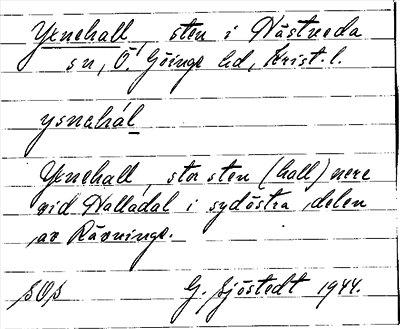 Yxnehall, sten i Nästveda
sn, Ö. Göinge hd, Krist. l.
ysnahál
Yxnehall, stor sten (hall) nere
vid Walladal i sydöstra delen
av Rävninge.
G. Sjöstedt 1944.